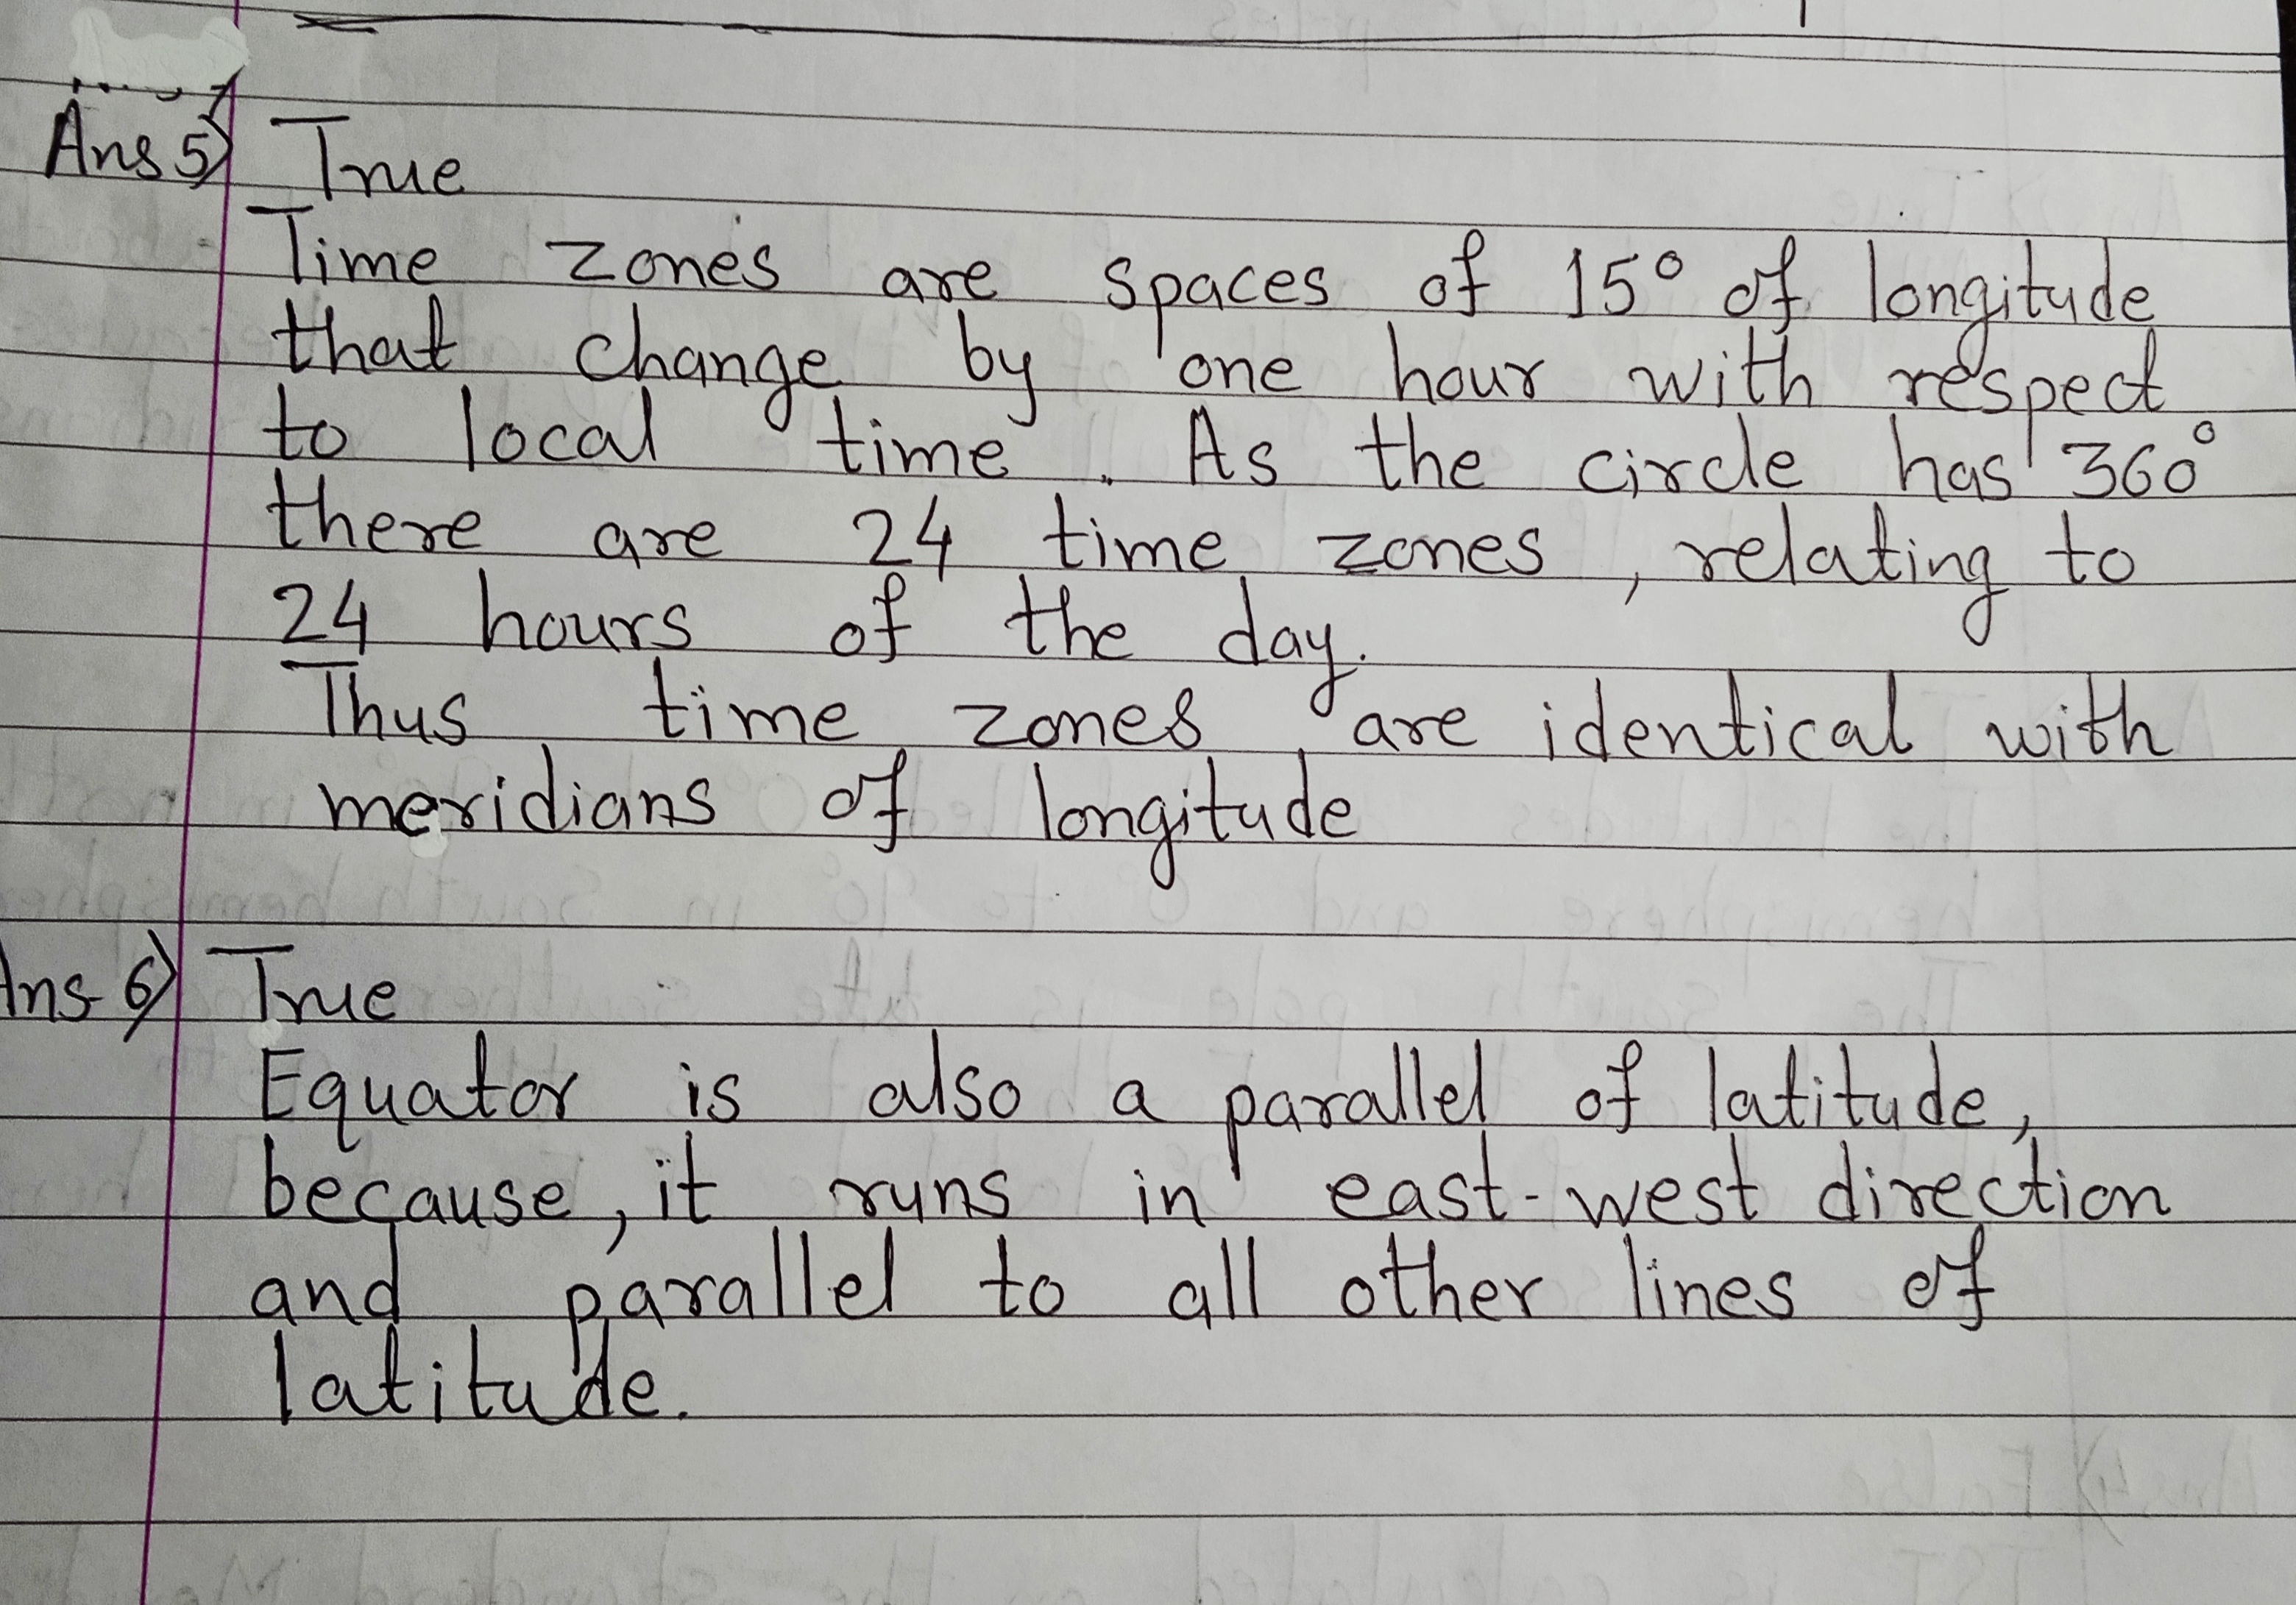 Ans 5) True
Time zones are spaces of 15° of longitude
that change by one hour with respect
to local time. As the circle has 360°
there are 24 time zones, relating to
24 hours of the day.
Thus time zones are identical with
meridians of longitude
Ans 6) True
Equator is also a parallel of latitude,
because, it runs in east-west direction
and parallel to all other lines of
latitude.